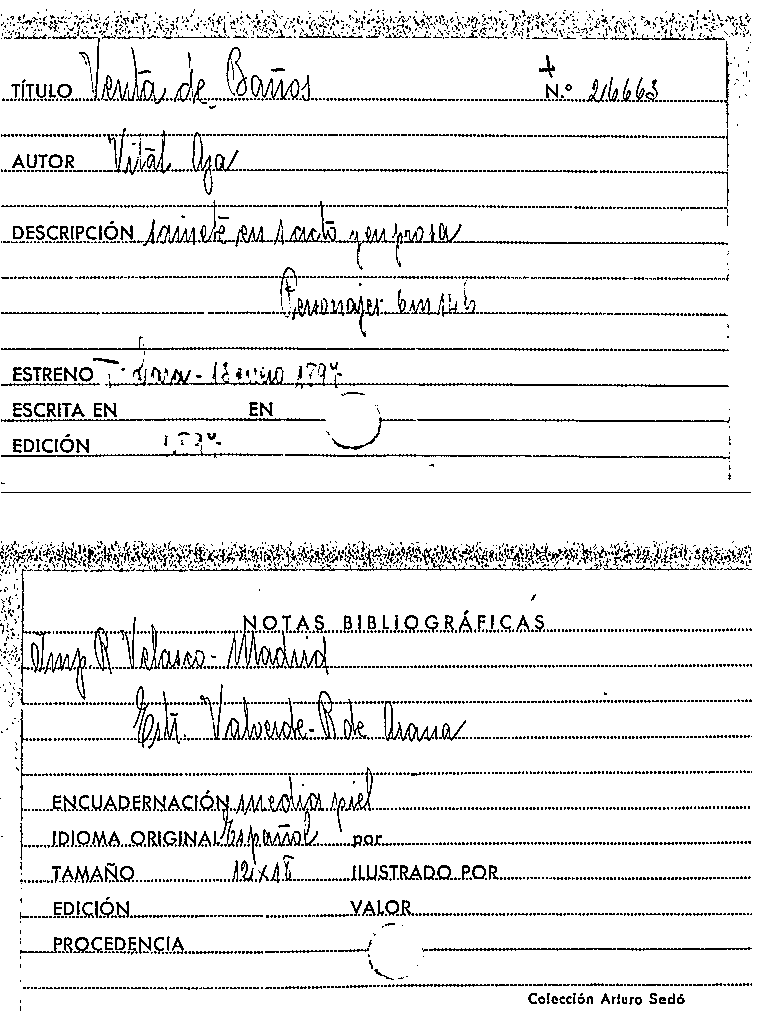 TÍTULO Venta de Baños N.º 26663
AUTOR Vital Aza
DESCRIPCIÓN sainete en 1 acto y en prosa
Personajes 6m 14h
ESTRENO T. Lara - 18 enero 1897
ESCRITA EN EN
EDICIÓN 1897
NOTAS BIBLIOGRÁFICAS
Imp R Velasco - Madrid
Estr. Valverde - R de Arana
ENCUADERNACIÓN media piel
IDIOMA ORIGINAL Español por
TAMAÑO 12x18 ILUSTRADO POR
EDICIÓN VALOR
PROCEDENCIA
Colección Arturo Sedó